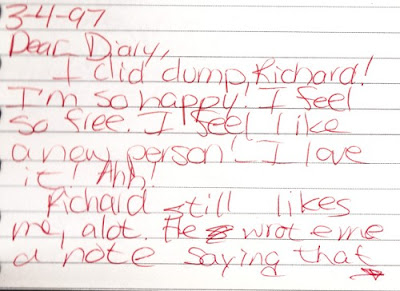 3-4-97
Dear Diary,
I did dump Richard!
I'm so happy! I feel
so free. I feel like
a new person! I love
it! Ahh!
Richard still likes
me, alot. He wrote me
a note saying that